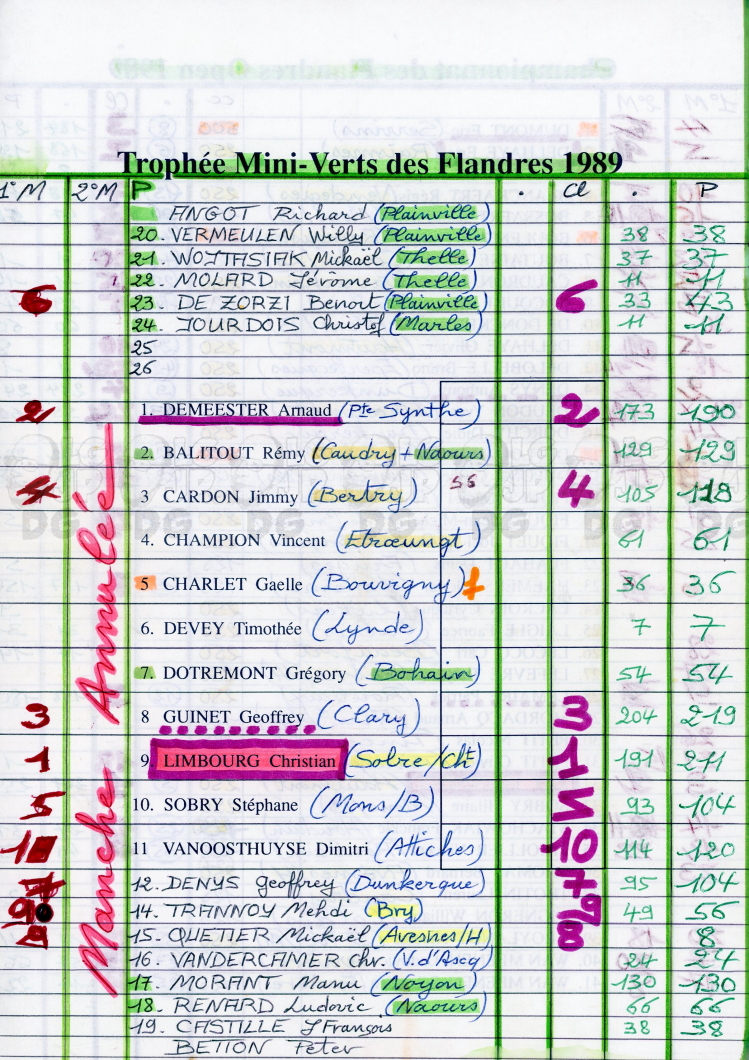 Trophée Mini-Verts des Flandres 1989
1°M 2°M P . Cl . P
ANGOT Richard (Plainville)
20. VERMEULEN Willy (Plainville) 38 38
21. WOJTASIAK Mickaël (Thelle) 37 37
22. MOLARD Jérôme (Thelle) 11 11
6 23. DE ZORZI Benoit (Plainville) 6 33 43
24. JOURDOIS Christof (Marles) 11 11
25
26
2 1. DEMEESTER Arnaud (Pte Synthe) 2 173 190
2. BALITOUT Rémy (Caudry + Naours) 129 129
4 3 CARDON Jimmy (Bertry) 55 4 105 118
4. CHAMPION Vincent (Etrœungt) 61 61
5 CHARLET Gaelle (Bouvigny) f 36 36
6. DEVEY Timothée (Lynde) 7 7
7. DOTREMONT Grégory (Bohain) 54 54
3 8 GUINET Geoffrey (Clary) 3 204 219
1 9. LIMBOURG Christian (Sobre/Cht) 1 191 211
5 10. SOBRY Stéphane (Mons/B) 5 93 104
10 11 VANOOSTHUYSE Dimitri (Attiches) 10 114 120
7 12. DENYS Geoffrey (Dunkerque) 7 95 104
9 14. TRANNOY Mehdi (Bry) 9 49 56
15. QUETIER Mickaël (Avesnes/H) 8 8
16. VANDERCAMER Chr. (V. d'Ascq) 24 24
17. MORANT Manu (Noyon) 130 130
18. RENARD Ludovic (Naours) 66 66
19. CASTILLE J François 38 38
BETION Peter
Manche Annulée